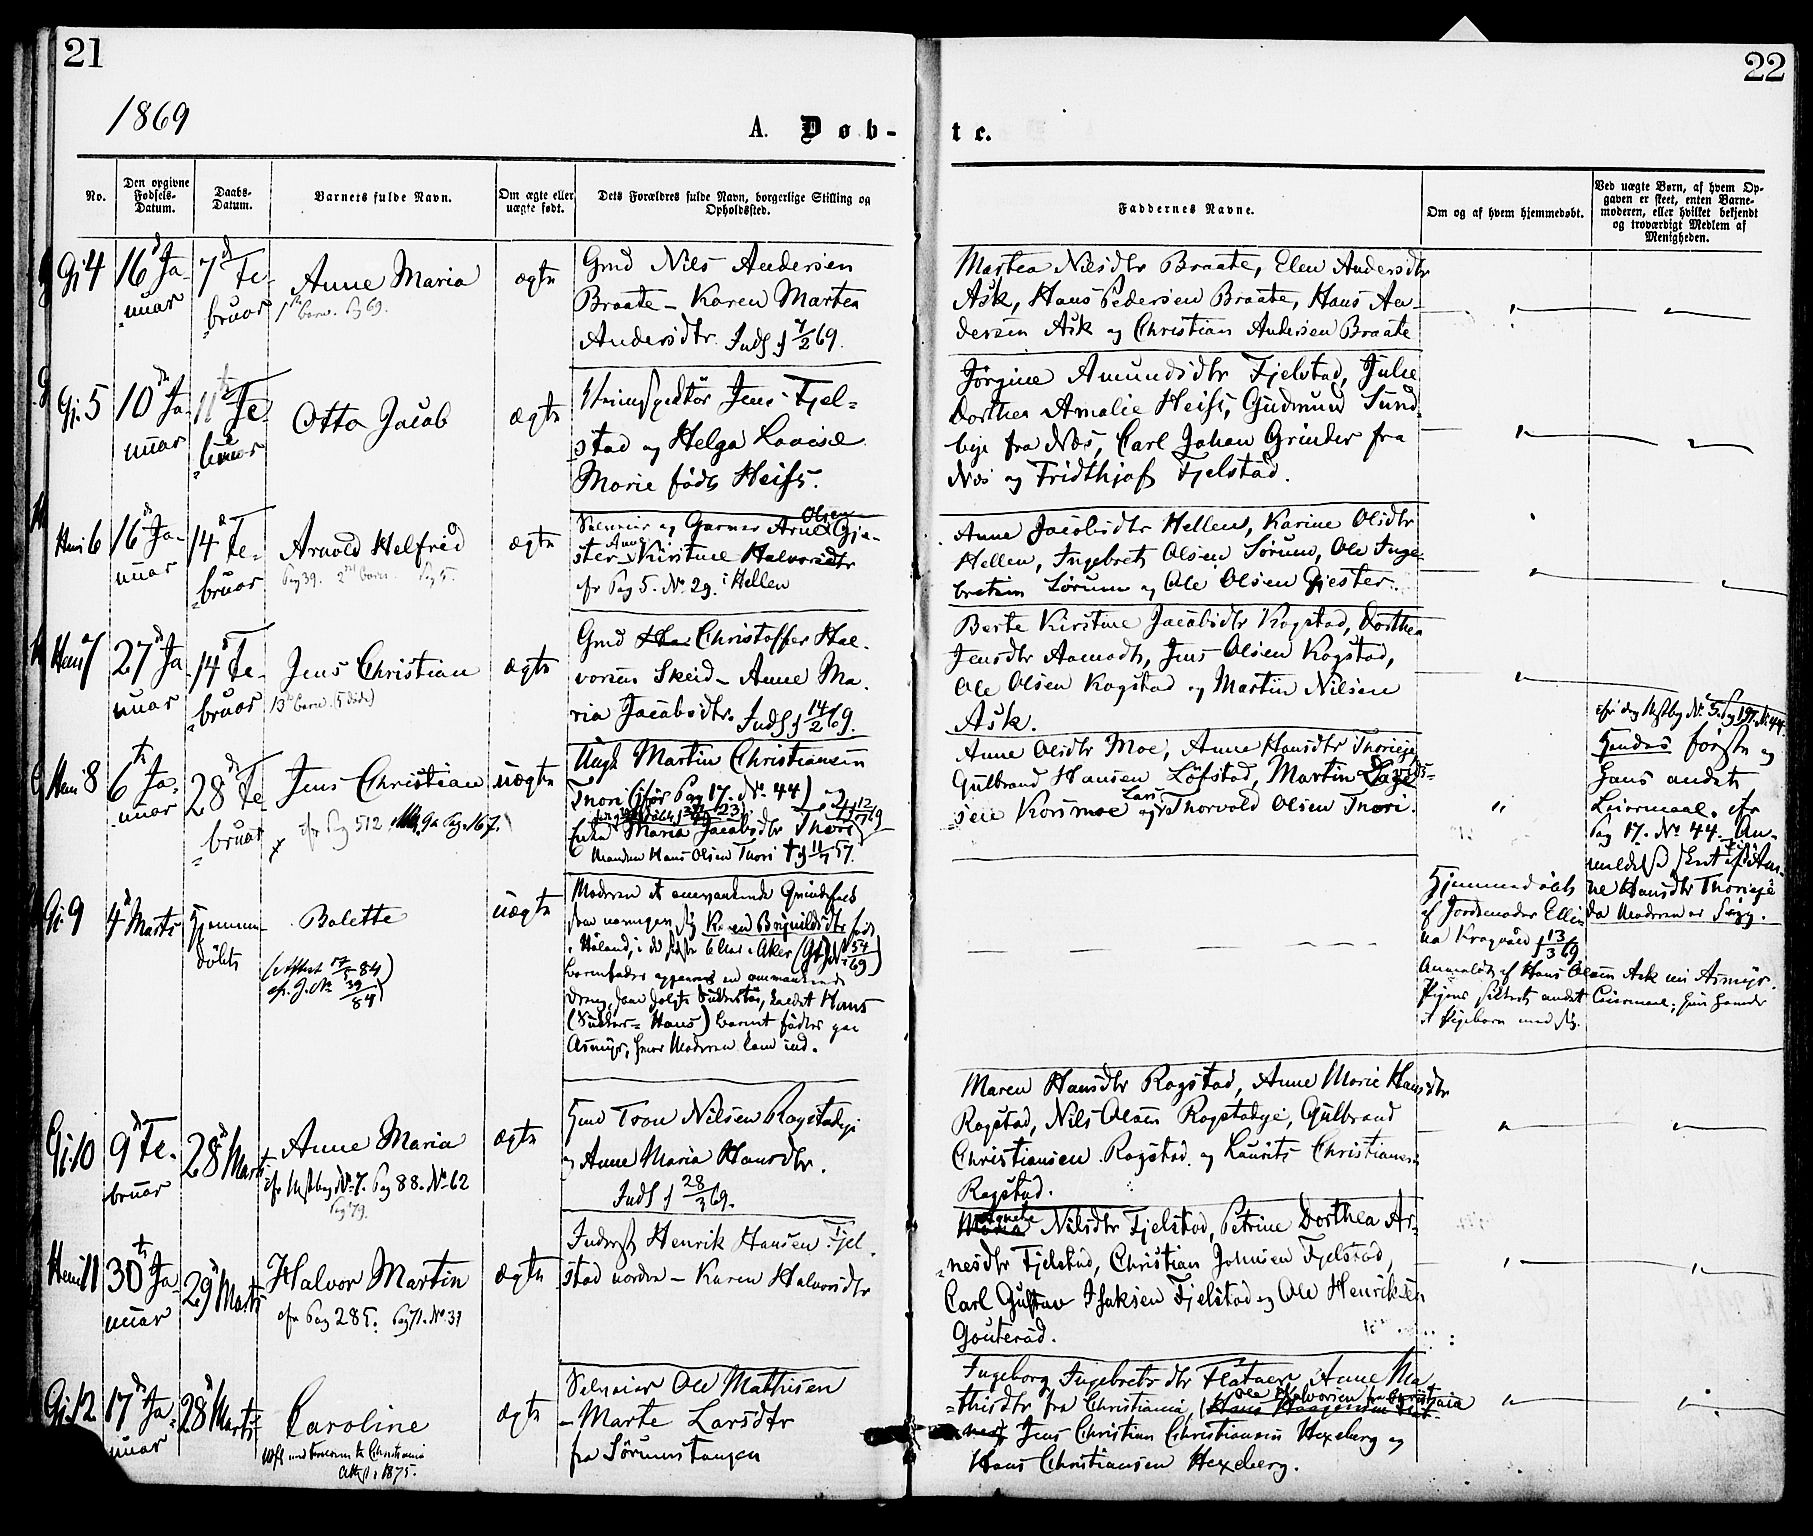 21
22
1869
A. Døb-
te.
No.
Den opgivne Fødsels-Datum.
Daabs-Datum.
Barnets fulde Navn.
Om ægte eller uægte født.
Dets Forældres fulde Navn, borgerlige Stilling og Opholdssted.
Faddernes Navne.
Om og af hvem hjemmedøbt.
Ved uægte Børn, af hvem Opgaven er skeet, enten Barnemoderen, eller hvilket bekjendt og troværdigt Medlem af Menigheden.
Gi 4
16d Ja-
nuar
7d Fe-
bruar
Anne Maria
1st Barn. Pg 69.
ægte
Gmd Nils Andersen
Braate - Karen Martea
Andersdtr. Inds f 7/2 69.
Martea Nilsdtr Braate, Elen Andersdtr
Ask, Hans Pedersen Braate, Hans An-
dersen Ask og Christian Andersen Braate
Gi. 5
10de Ja-
nuar
11te Fe-
bruar
Otto Jacob
ægte
Jens Fjel-
stad og Helga Lovise
Marie født Heifs.
Jørgine Amundsdtr Fjelstad, Julie
Dorthea Amalie Heifs, Gudmund Sund-
bye fra Næs, Carl Johan Grinder fra
Næs og Fridthjof Fjelstad.
Hem 6
16de Ja-
nuar
14d Fe-
bruar
Arnold Helfred
Pag 39. 2det Barn. Pg 5.
ægte
Selveier og Garver Arne Olsen Gjæ-
ster - Anne Kirstine Halvorsdtr
cfr Pag 5. No 29. i Hellen
Anne Jacobsdtr Hellen, Karine Olsdtr
Hellen, Ingebret Olsen Sørum, Ole Inge-
bretsen Sørum og Ole Olsen Gjester.
Hem 7
27d Ja
nuar
14d Fe-
bruar
Jens Christian
13d Barn (5 døde)
ægte
Gmd Christoffer Hal-
vorsen Skeid - Anne Ma-
ria Jacobsdtr. Inds f 14/2 69.
Berte Kirstine Jacobsdtr Kogstad, Dorthea
Jensdtr Aamodt, Jens Olsen Kogstad,
Ole Olsen Kogstad og Martin Nilsen
Ask.
Hem 8
6te Ja-
nuar
28de Fe
bruar
Jens Christian
cfr Pag 512 Pag 167.
uægte
Ungk Martin Christiansen
Thori (jfør Pag 17. No 44) og
Enke Maria Jacobsdtr Thori
Manden Hans Olsen Thori † d 11/7 57.
Anne Olsdtr Moe, Anne Hansdtr Thorieje
Gulbrand Hansen Løfstad, Martin
seie Korsmoe og Lars Thorvald Olsen Thori.
Hendes første og
hans andet
Leiermaal. cfr
Pag 17. No 44. An-
meldelse skeet af An-
ne Hansdtr Thorieje
da Moderen er Syg.
Gi 9
4d Marts
Hjemme-
døbt
Bolette
(Attest 17/5 84)
cfr. J. No 39/84
uægte
Moderen et omvankende Qvindfolk
som navngav sig Karen Brynildsdtr født
i Høland, i de sidste 6 Aar i Aker
Barnefader opgaves en omvankende
Dreng, kaldet Hans
(Sukker-Hans) Barnet fødtes paa
Asmyr, hvor Moderen kom ind.
Hjemmedøbt
af Jordemoder Elli-
na Kragaas f 13/3 69
Anmeldt af Hans Olsen Ask ved Asmyr.
Pigens andet Leiermaal; hun havde
et Pigebarn med sig.
Gi 10
9d Fe-
bruar
28d Marts
Anne Maria
cfr Udflbog No 7. Pag 88. No 62
Pag 79.
ægte
Hmd Tron Nilsen Rogstadeje
og Anne Maria Hansdtr.
Inds f 28/3 69.
Maren Hansdtr Rogstad, Anne Marie Hansdtr
Rogstad, Nils Olsen Rogstadeje, Gulbrand
Christiansen Rogstad og Laurits Christiansen
Rogstad.
Hem 11
30te Ja-
nuar
29d Marts
Halvor Martin
cfr Pag 285. Pag 71. No 31
ægte
Inderst Henrik Hansen Fjel-
stad nordre - Karen Halvorsdtr
Agnete Nilsdtr Fjelstad, Petrine Dorthea Ar-
nesdtr Fjelstad, Christian Johnsen Fjelstad,
Carl Gustav Isaksen Fjelstad og Ole Henriksen
Gouterud.
Gi 12
17de Ja-
nuar
28d Marts
Caroline
Udfl med Forældrene til Christiania
Attest i 1875.
ægte
Selveier Ole Mathisen
- Marte Larsdtr
fra Sørumstangen
Ingeborg Ingebretsdtr Flataker, Anne Ma-
thisdtr fra Christiania, Ole Halvorsen fra Christiania
Jens Christian Christiansen Hexeberg og
Hans Christiansen Hexeberg.